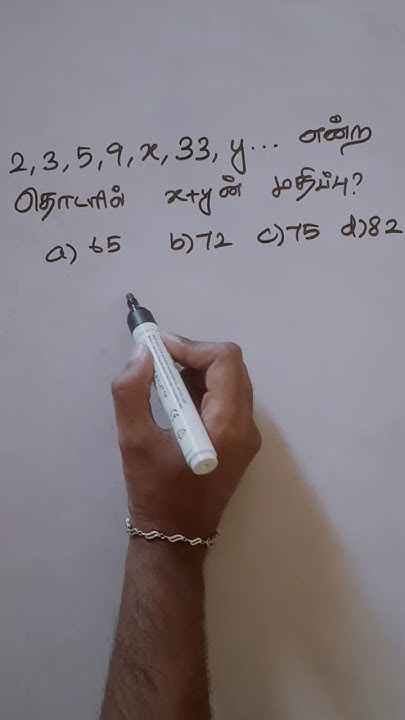 2, 3, 5, 9, x, 33, y... என்ற
தொடரில் x+y ன் மதிப்பு?
a) 65 b) 72 c) 75 d) 82